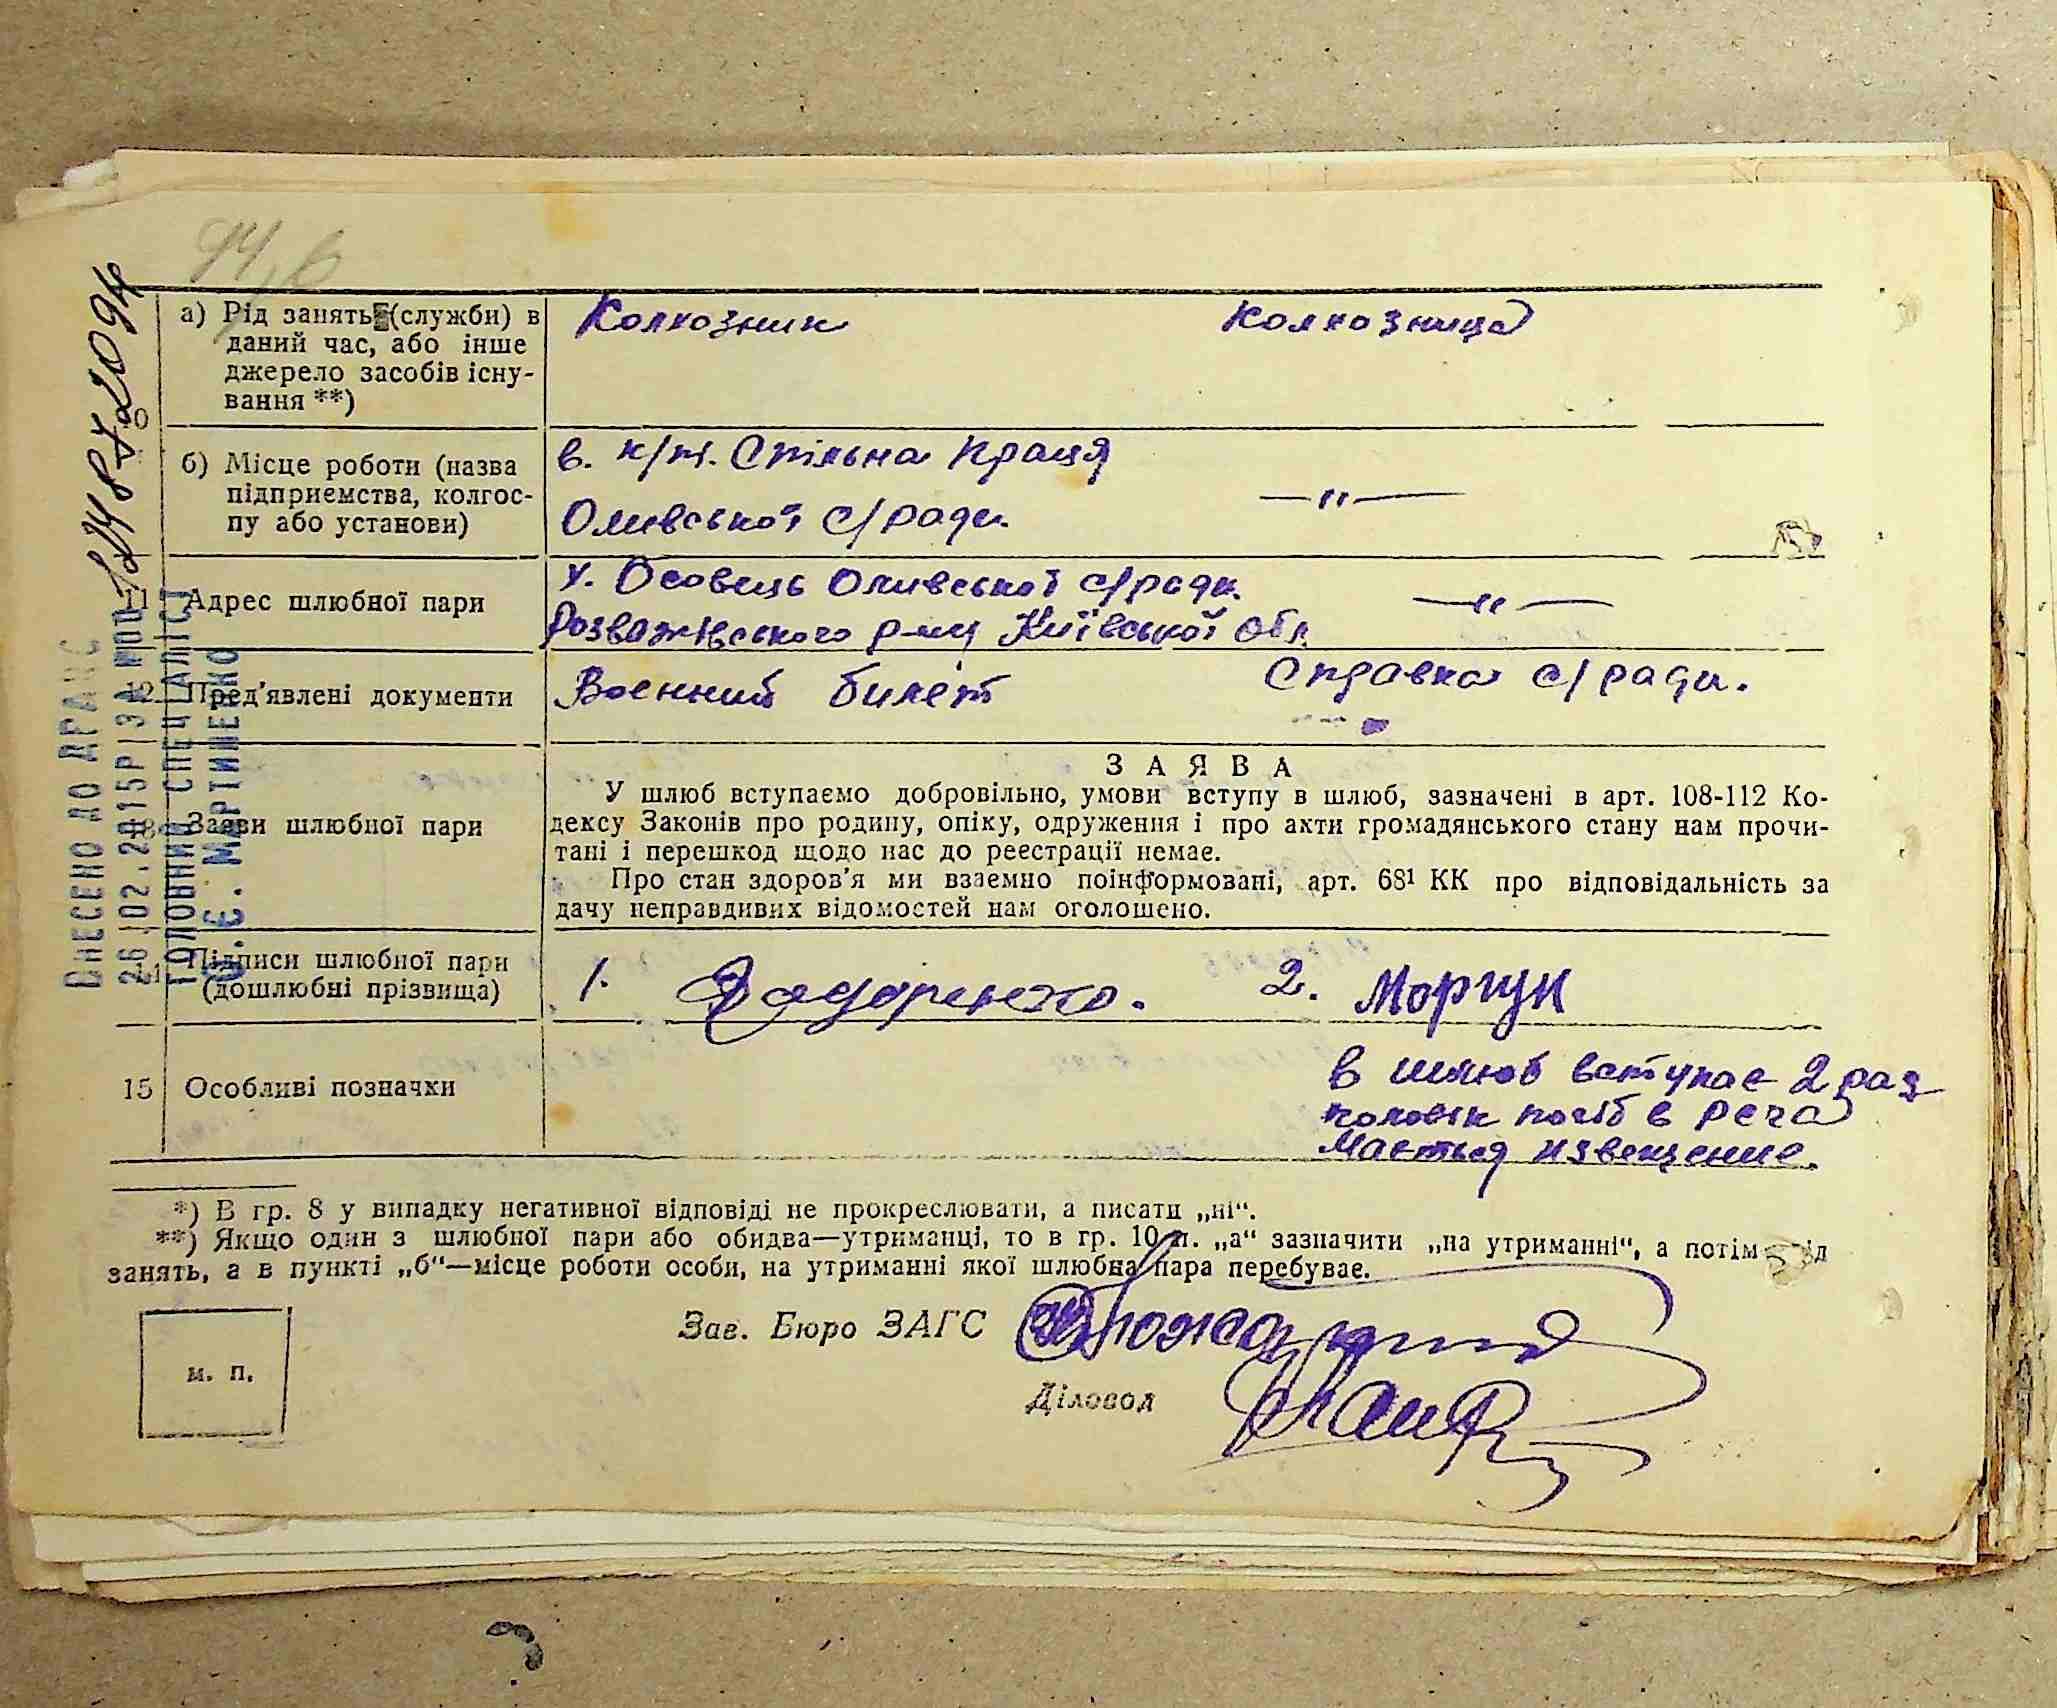 94
а) Рід занять (служби) в
даний час, або інше
джерело засобів існу-
вання **)
Колхозник
Колхозница
б) Місце роботи (назва
підприємства, колгос-
пу або установи)
в. к/т. Спільна Праця
Оливської с/ради.
—„—
11 Адрес шлюбної пари
х. Осовець Оливської с/ради.
Розважівського р-ну Київської обл.
—„—
12 Пред'явлені документи
Военний билет
Справка с/ради.
Заяви шлюбної пари
ЗАЯВА
У шлюб вступаємо добровільно, умови вступу в шлюб, зазначені в арт. 108-112 Ко-
дексу Законів про родину, опіку, одруження і про акти громадянського стану нам прочи-
тані і перешкод щодо нас до реєстрації немає.
Про стан здоров'я ми взаємно поінформовані, арт. 68¹ КК про відповідальність за
дачу неправдивих відомостей нам оголошено.
Підписи шлюбної пари
(дошлюбні прізвища)
1.
2. Моргун
15 Особливі позначки
в шлюб вступає 2 раз
чоловік погіб в
Мається извещение.
*) В гр. 8 у випадку негативної відповіді не прокреслювати, а писати „ні“.
**) Якщо один з шлюбної пари або обидва—утриманці, то в гр. 10 п. „а“ зазначити „на утриманні“, а потім рід
занять, а в пункті „б“—місце роботи особи, на утриманні якої шлюбна пара перебуває.
Зав. Бюро ЗАГС
Діловод
м. п.
ВНЕСЕНО ДО ДРАЦС
26.02.2015Р ЗА №00124872094
ГОЛОВНИЙ СПЕЦІАЛІСТ
О.Є. МАРТИНЕНКО